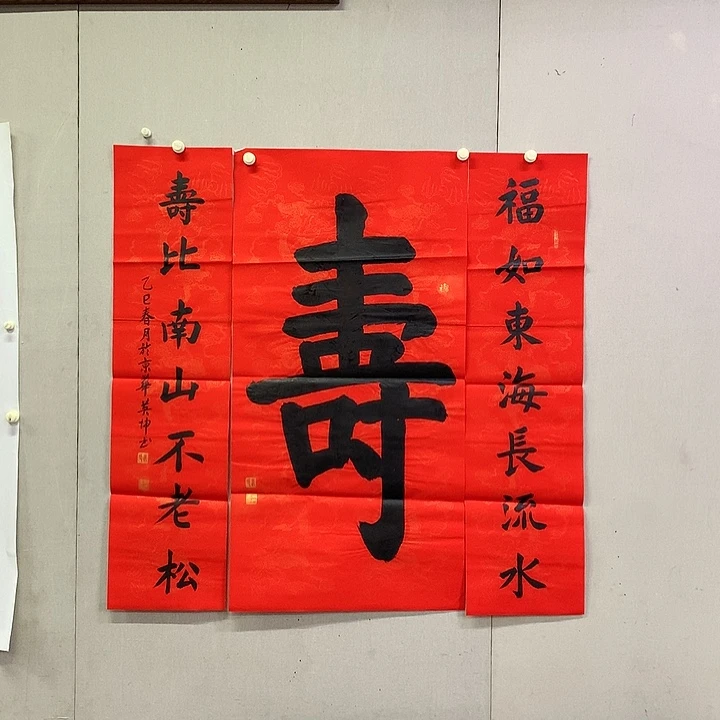 福如東海長流水
壽
壽比南山不老松
乙巳春月於京華英坤书